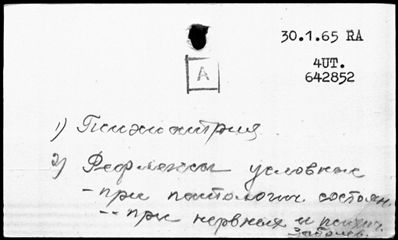 30.1.65 RA
4UT.
642852
A
1) Психиатрия
2) Рефлексы условные
- при патологич. состоян.
-- при нервных и психич.
заболев.